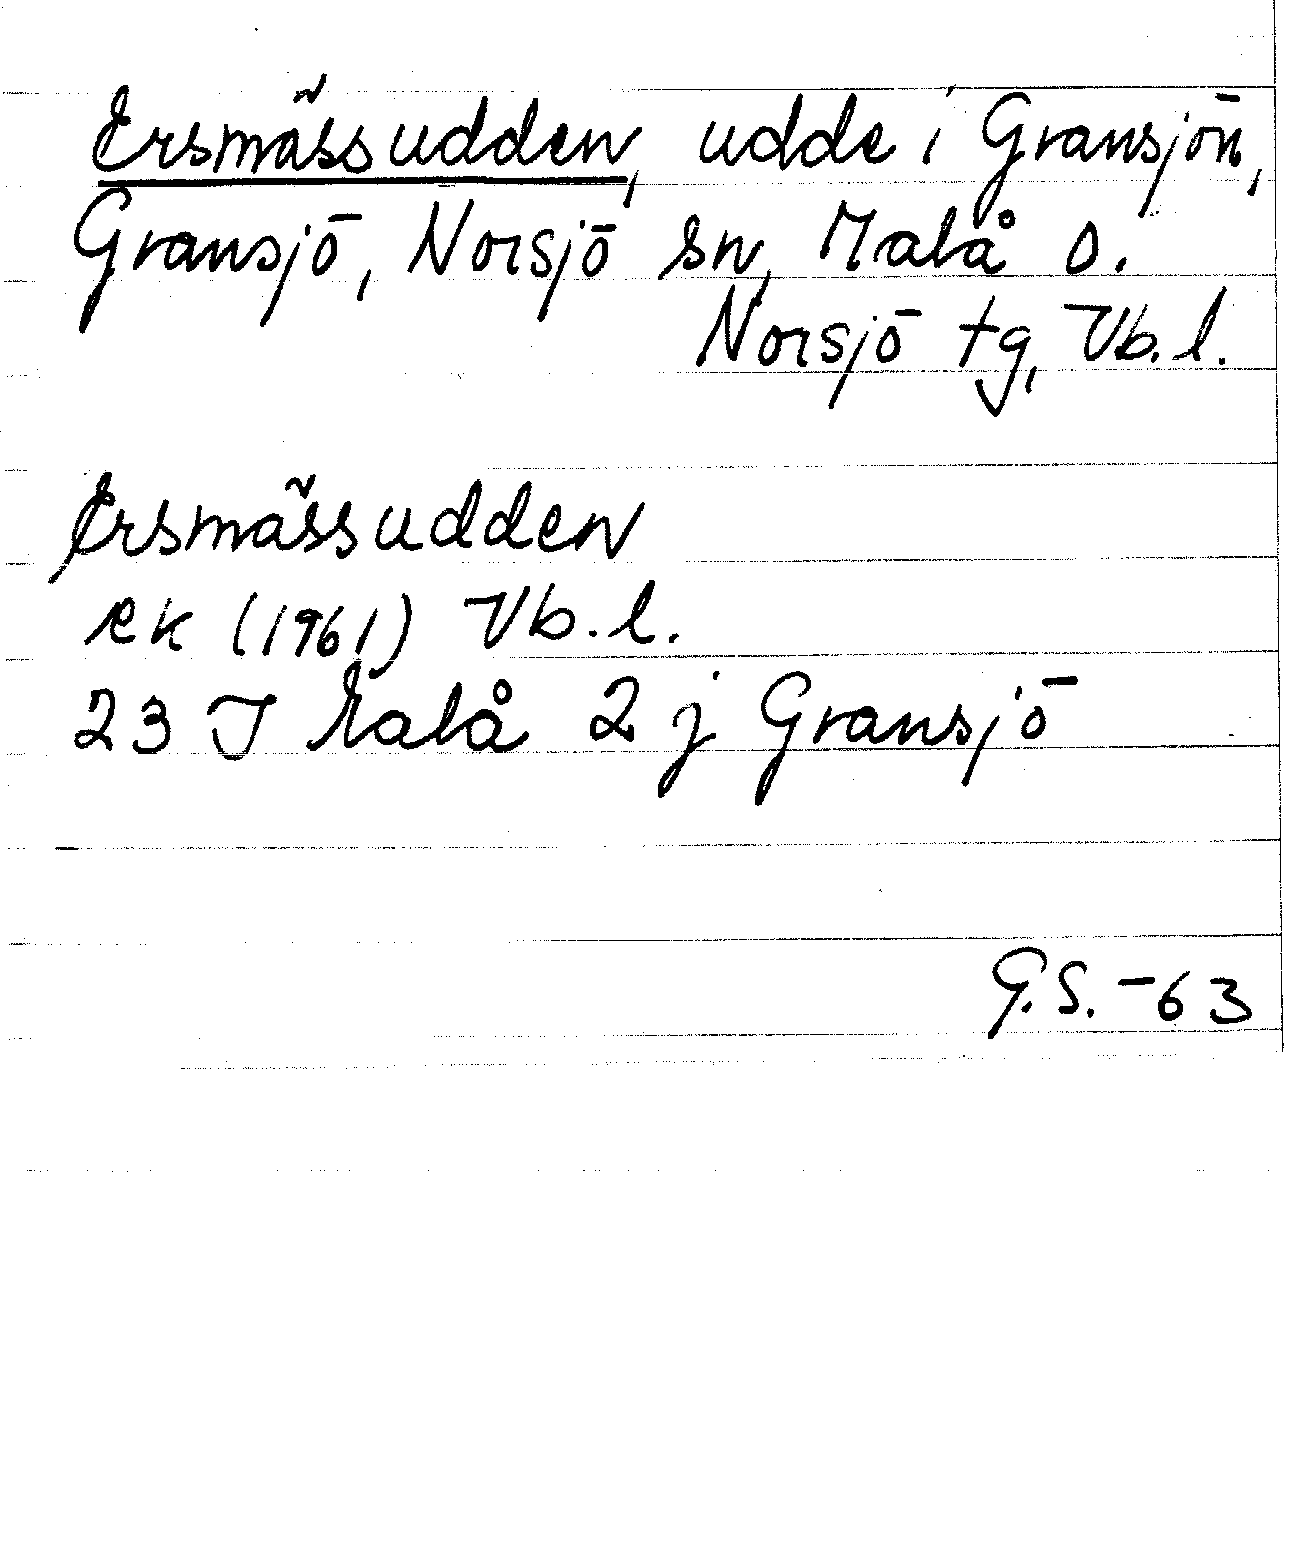 Ersmässudden, udde i Gransjön,
Gransjö, Norsjö sn, Malå o.
Norsjö tg, Vb. l.
Ersmässudden
ek (1961) Vb. l.
23 J Malå 2 j Gransjö
G.S. -63